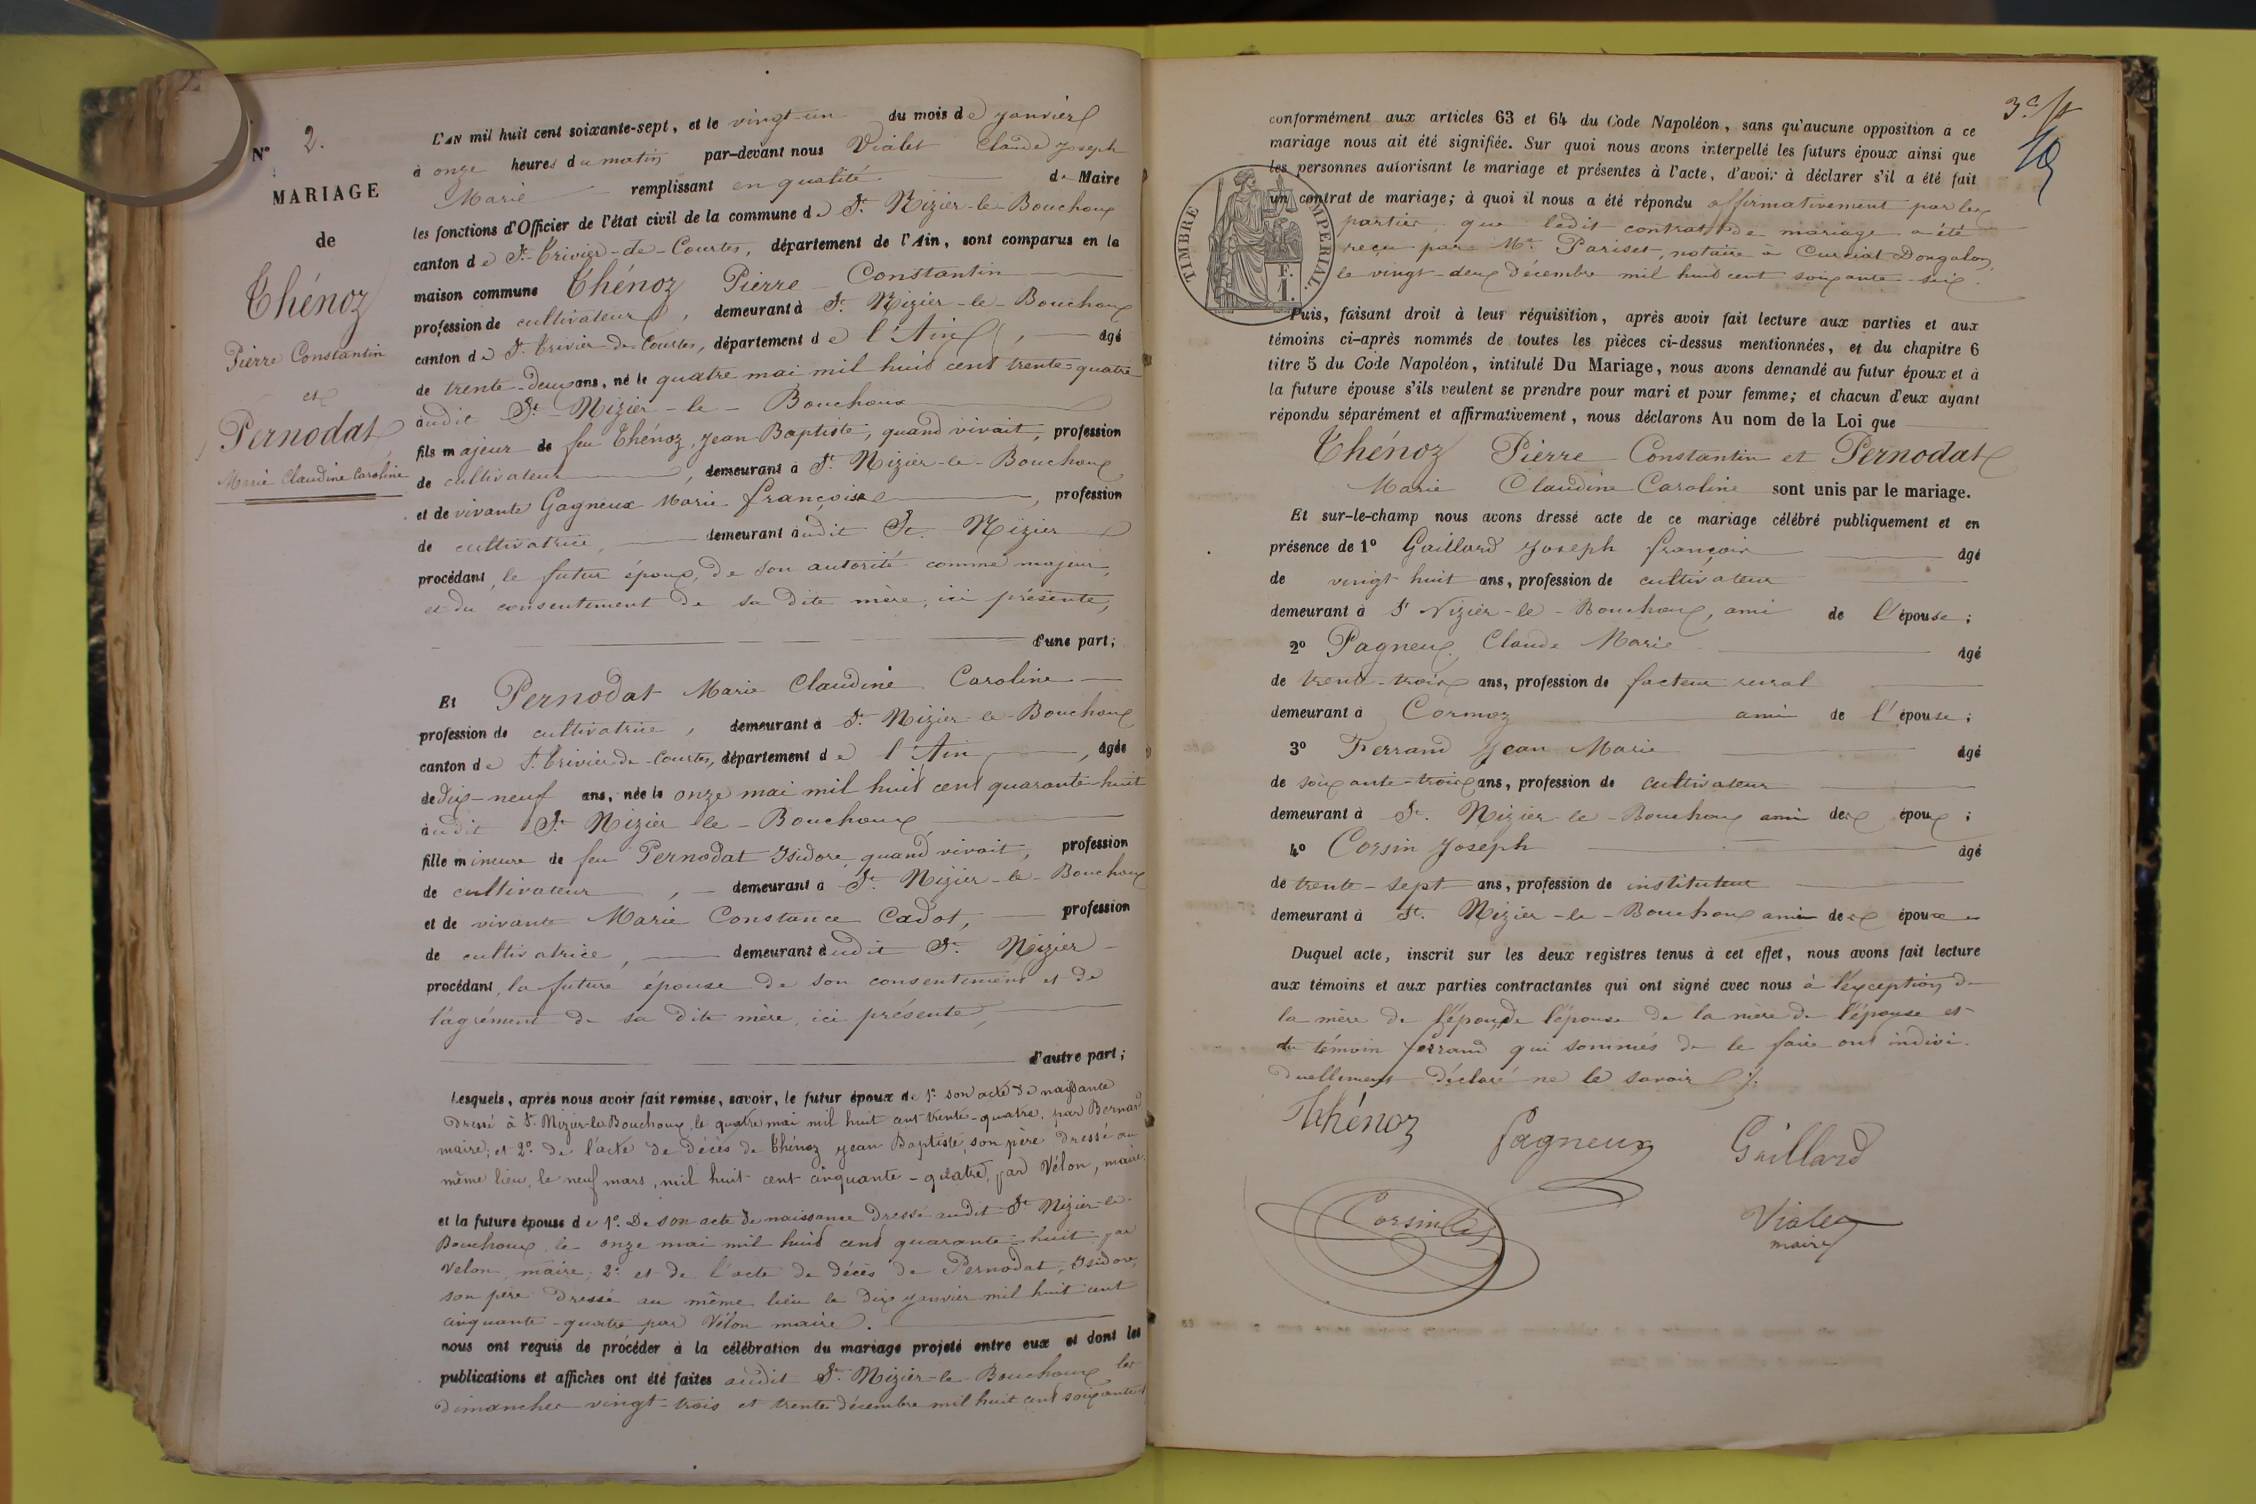 N° 2.
MARIAGE
de
Thénoz
Pierre Constantin
et
Pernodat
Marie Claudine Caroline
L'AN mil huit cent soixante-sept, et le vingt-un du mois de janvier
à onze heures du matin par-devant nous Vialet Claude Joseph
Marie remplissant en qualité de Maire
les fonctions d'Officier de l'état civil de la commune de St. Nizier-le-Bouchoux
canton de St. Trivier-de-Courtes, département de l'Ain, sont comparus en la
maison commune Thénoz Pierre Constantin
profession de cultivateur, demeurant à St. Nizier-le-Bouchoux
canton de St. Trivier de Courtes, département de l'Ain, âgé
de trente-deux ans, né le quatre mai mil huit cent trente-quatre
audit St. Nizier-le-Bouchoux
fils majeur de feu Thénoz, Jean Baptiste, quand vivait, profession
de cultivateur, demeurant à St. Nizier-le-Bouchoux
et de vivante Gagneux Marie Françoise, profession
de cultivatrice, demeurant audit St. Nizier
procédant, le futur époux, de son autorité comme majeur,
et du consentement de sa dite mère, ici présente,
d'une part;
Et Pernodat Marie Claudine Caroline
profession de cultivatrice, demeurant à St. Nizier-le-Bouchoux
canton de St. Trivier de-Courtes, département de l'Ain, âgée
de dix-neuf ans, née le onze mai mil huit cent quarante-huit
audit St. Nizier-le-Bouchoux,
fille mineure de feu Pernodat Isidore, quand vivait, profession
de cultivateur, demeurant à St. Nizier-le-Bouchoux
et de vivante Marie Constance Cadot, profession
de cultivatrice, demeurant audit St. Nizier
procédant, la future épouse de son consentement et de
l'agrément de sa dite mère, ici présente,
d'autre part;
Lesquels, après nous avoir fait remise, savoir, le futur époux de 1° son acte de naissance
dressé à St. Nizier-le-Bouchoux, le quatre mai mil huit cent trente-quatre, par Bernard
maire; et 2° de l'acte de décès de Thénoz Jean Baptiste, son père dressé au
même lieu, le neuf mars, mil huit cent cinquante-quatre, par Vélon, maire.
et la future épouse de 1°. De son acte de naissance dressé audit St Nizier-le-
Bouchoux, le onze mai mil huit cent quarante-huit par
Velon, maire; 2° et de l'acte de décès de Pernodat, Isidore,
son père dressé au même lieu le dix janvier mil huit cent
cinquante-quatre par Vélon maire.
nous ont requis de procéder à la célébration du mariage projeté entre eux et dont les
publications et affiches ont été faites audit St. Nizier-le-Bouchoux les
dimanches vingt-trois et trente décembre mil huit cent soixante
3e
TIMBRE IMPERIAL.
F.
1.
conformément aux articles 63 et 64 du Code Napoléon, sans qu'aucune opposition à ce
mariage nous ait été signifiée. Sur quoi nous avons interpellé les futurs époux ainsi que
les personnes autorisant le mariage et présentes à l'acte, d'avoir à déclarer s'il a été fait
un contrat de mariage; à quoi il nous a été répondu affirmativement par les
parties, que ledit contrat de mariage a été
reçu par Me. Pariset, notaire à Curciat Dongalon,
le vingt-deux décembre mil huit cent soixante-six.
Puis, faisant droit à leur réquisition, après avoir fait lecture aux parties et aux
témoins ci-après nommés de toutes les pièces ci-dessus mentionnées, et du chapitre 6
titre 5 du Code Napoléon, intitulé Du Mariage, nous avons demandé au futur époux et à
la future épouse s'ils veulent se prendre pour mari et pour femme; et chacun d'eux ayant
répondu séparément et affirmativement, nous déclarons Au nom de la Loi que
Thénoz Pierre Constantin et Pernodat
Marie Claudine Caroline sont unis par le mariage.
Et sur-le-champ nous avons dressé acte de ce mariage célébré publiquement et en
présence de 1° Gaillard Joseph François âgé
de vingt huit ans, profession de cultivateur
demeurant à St Nizier-le-Bouchoux, ami de l'épouse;
2° Pagneux Claude Marie âgé
de trente-trois ans, profession de facteur rural
demeurant à Cormoz ami de l'épouse;
3° Ferrand Jean Marie âgé
de soixante-trois ans, profession de cultivateur
demeurant à St. Nizier-le-Bouchoux ami des époux;
4° Corsin Joseph âgé
de trente-sept ans, profession de instituteur
demeurant à St. Nizier-le-Bouchoux ami des époux
Duquel acte, inscrit sur les deux registres tenus à cet effet, nous avons fait lecture
aux témoins et aux parties contractantes qui ont signé avec nous à l'exception de
la mère de l'époux, de l'épouse de la mère de l'épouse et
du témoin Ferrand qui sommés de le faire ont indivi-
duellement déclaré ne le savoir ./.
Thénoz Pagneux Gaillard
Corsin
Vialet
maire